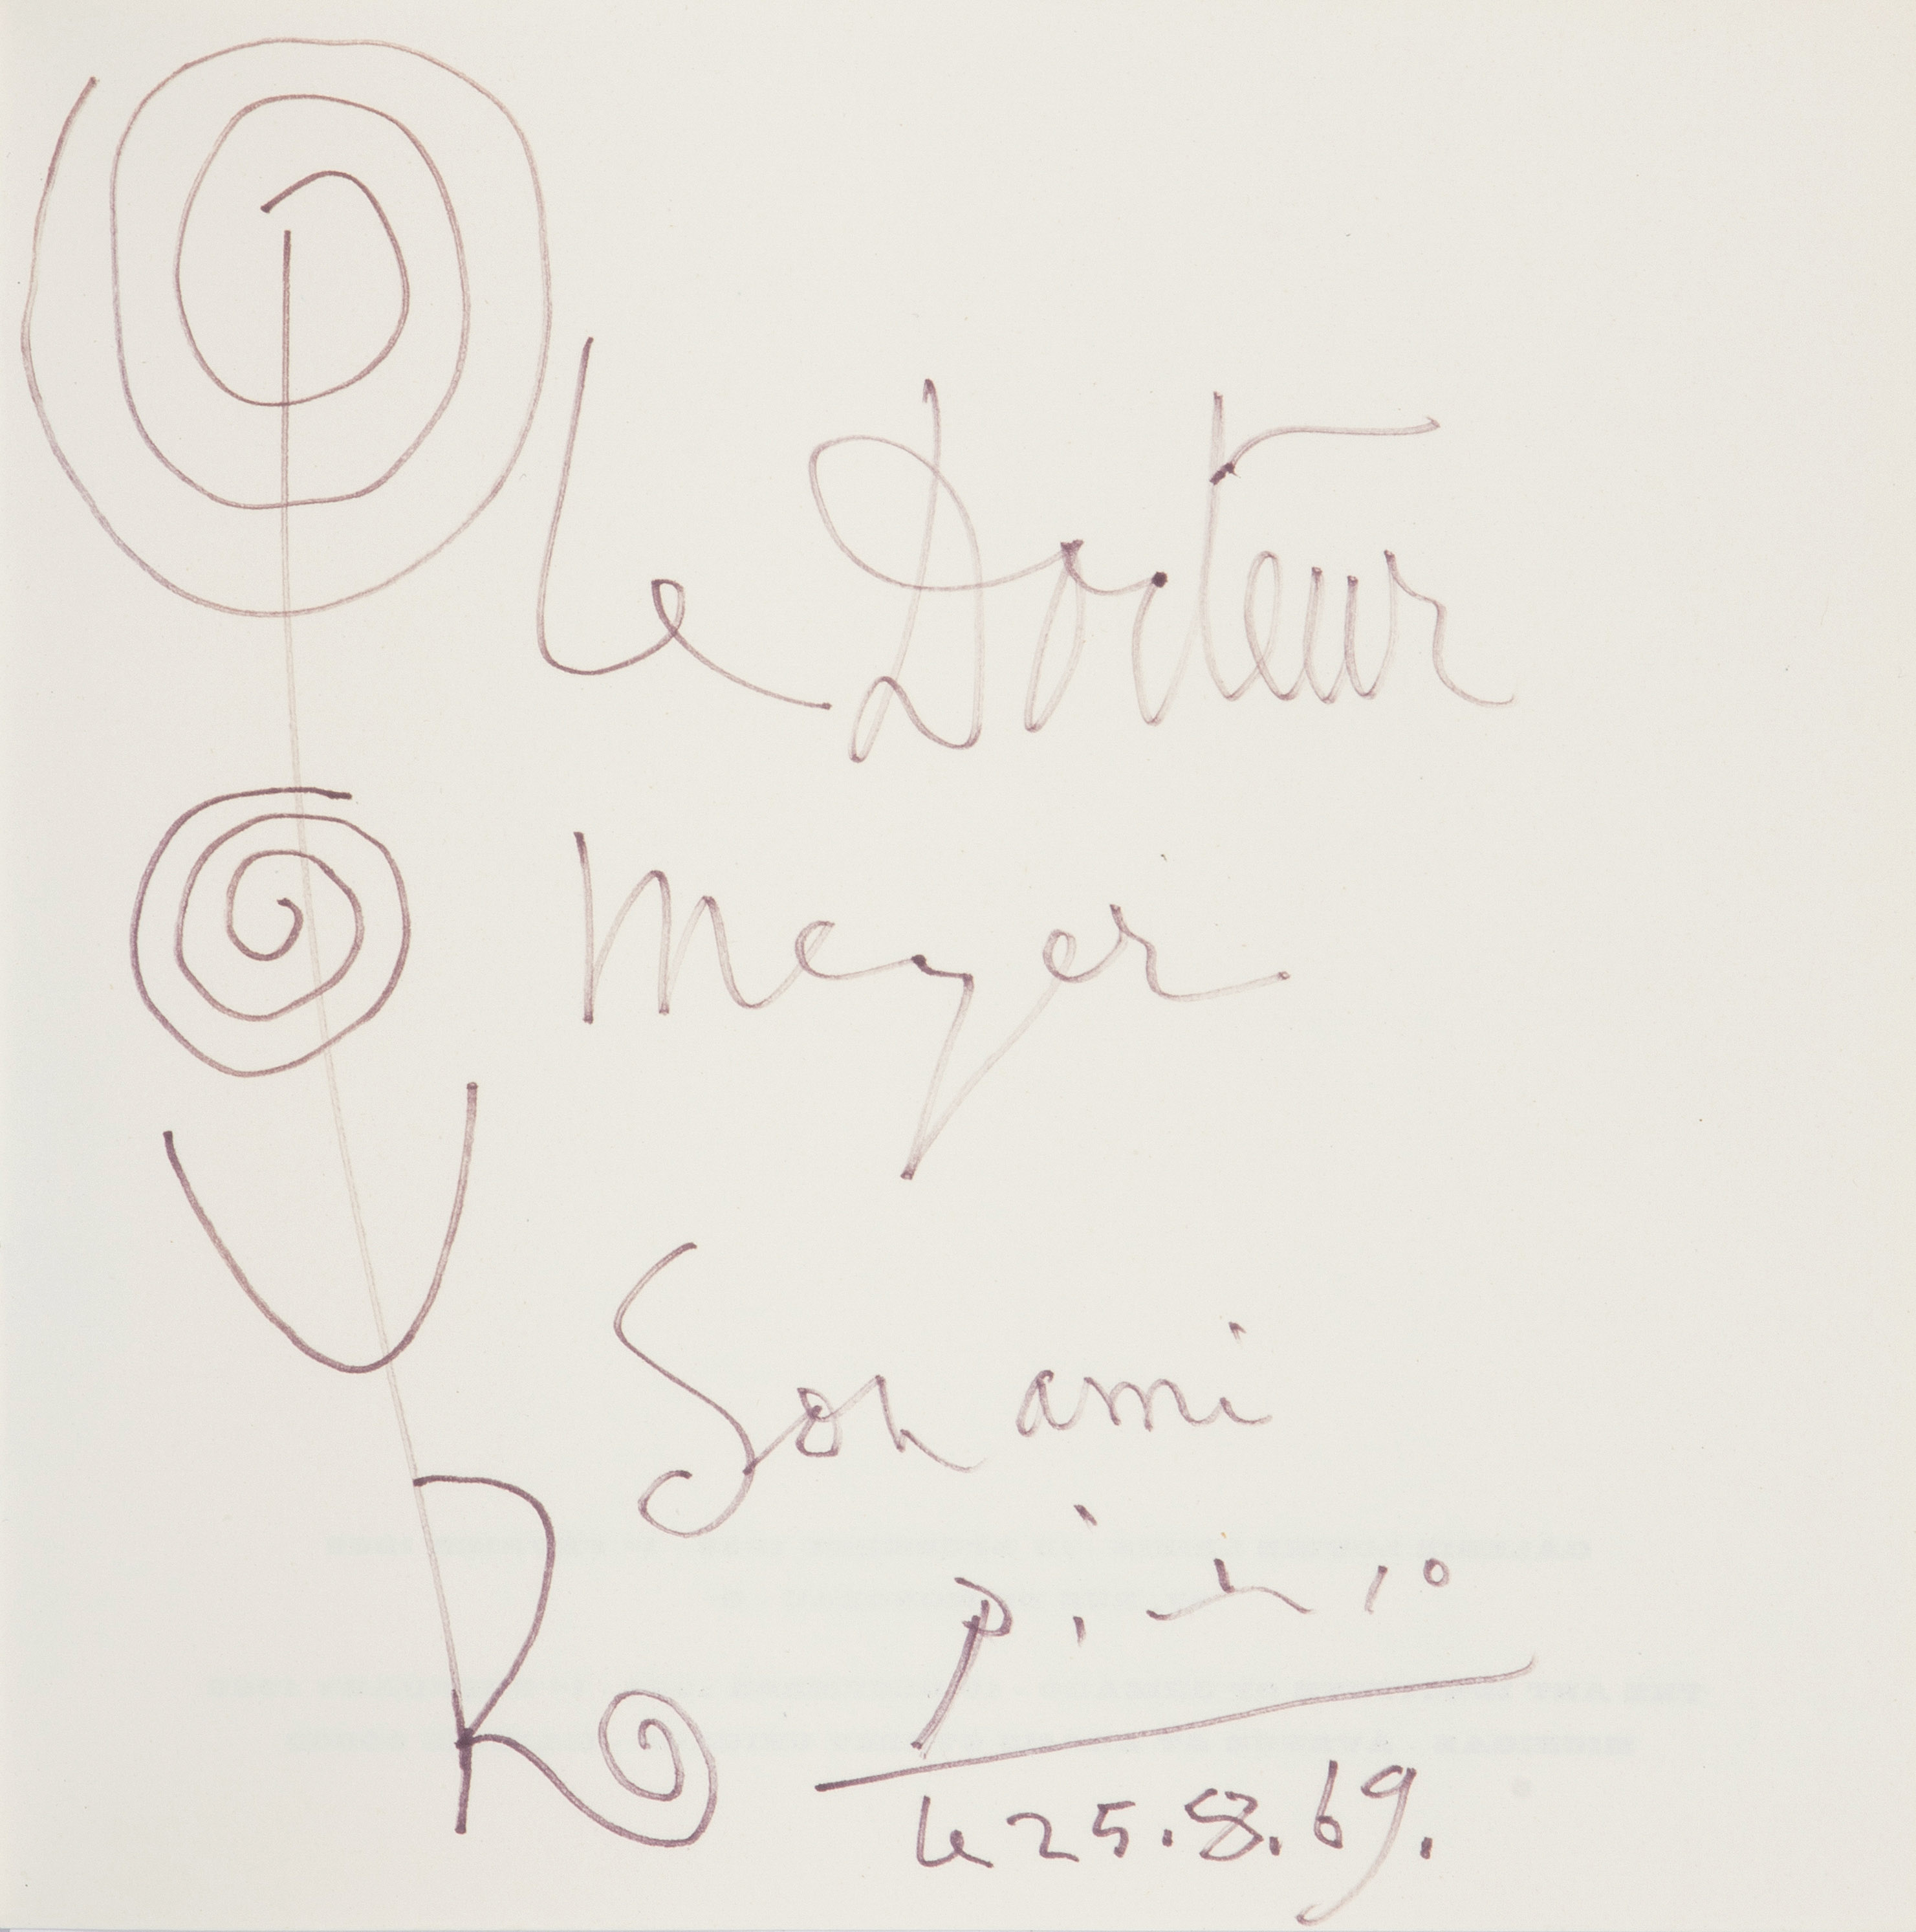 POUR
Le Docteur
Meyer
Son ami
le 25.8.69.